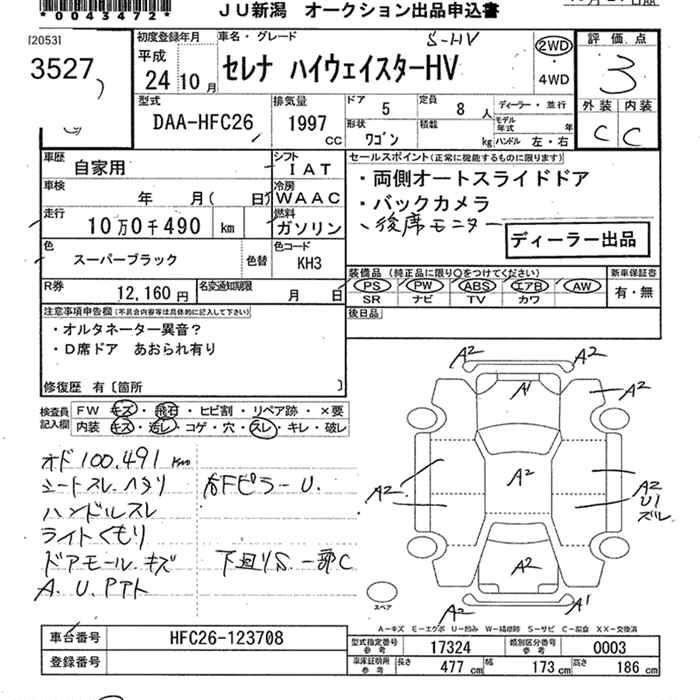 *0043472*
JU新潟 オークション出品申込書
[2053]
3527
初度登録年月
平成
24 10 月
車名・グレード
S-HV
セレナ ハイウェイスターHV
2WD
・
4WD
評価点
3
外装 内装
C C
型式
DAA-HFC26
排気量
1997
CC
ドア
5
定員
8 人
形状
ワゴン
積載
kg
ディーラー・並行
モデル年式 年
ハンドル 左・右
車歴
自家用
シフト
IAT
車検
年 月( 日)
冷房
WAAC
走行
10万0千490 km
燃料
ガソリン
色
スーパーブラック
色替
色コード
KH3
R券
12,160 円
名変通知期限
月 日
セールスポイント(正常に機能するものに限ります)
・両側オートスライドドア
・バックカメラ
・後席モニター
ディーラー出品
装備品(純正品に限り○をつけてください)
新車保証書
PS PW ABS エアB AW
SR ナビ TV カワ
有・無
後日品
注意事項申告欄(不具合内容等は具体的に記入して下さい)
・オルタネーター異音?
・D席ドア あおられ有り
修復歴 有〔箇所 〕
検査員記入欄
FW キズ・飛石・ヒビ割・リペア跡・×要
内装 キズ・汚レ・コゲ・穴・スレ・キレ・破レ
オド100.491 Km
シートスレ.ヘタリ
右Fピラー U.
ハンドルスレ
ライトくもり
ドアモール.キズ
下廻りS.一部C
A.U.Pアト
A2 A2
A1
A2
A2 A2 A2
U1
ズレ
A2
A2 A1
スペア
A-キズ E-エクボ U-凹み W-補修跡 S-サビ C-腐食 XX-交換済
車台番号
HFC26-123708
登録番号
型式指定番号 参考
17324
類別区分番号 参考
0003
車庫証明用 参考
長さ 477 cm
幅 173 cm
高さ 186 cm